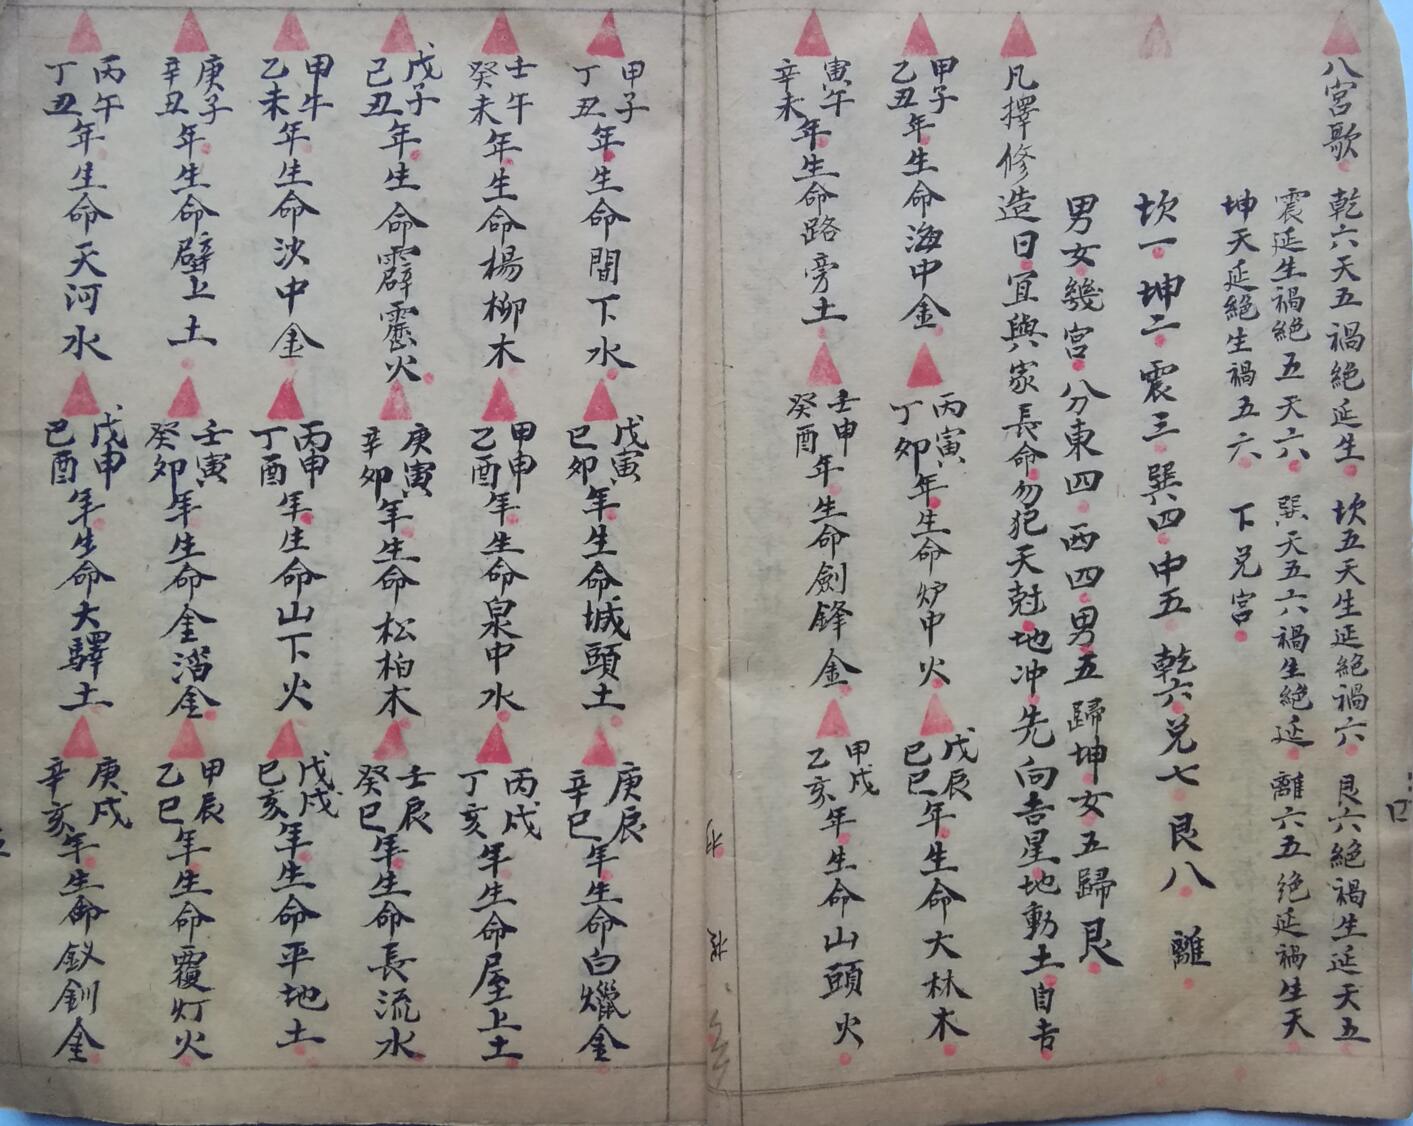 八宮歌 乾六天五禍絕延生 坎五天生延絕禍六 艮六絕禍生延天五
震延生禍絕五天六 巽天五六禍生絕延 離六五绝延禍生天
坤天延絕生禍五六 下兑宫
坎一 坤二 震三 巽四 中五 乾六 兑七 艮八 離
男女幾宮分東四西四男五歸坤女五歸艮
凡擇修造日宜與家長命勿犯天尅地冲先向吉星地動土自吉
甲子乙丑年生命海中金 丙寅丁卯年生命炉中火 戊辰己巳年生命大林木
寅午辛未年生命路旁土 壬申癸酉年生命劍鋒金 甲戌乙亥年生命山頭火
甲子丁丑年生命間下水 戊寅己卯年生命城頭土 庚辰辛巳年生命白爉金
壬午癸未年生命楊柳木 甲申乙酉年生命泉中水 丙戌丁亥年生命屋上土
戊子己丑年生命霹靂火 庚寅辛卯年生命松柏木 壬辰癸巳年生命長流水
甲午乙未年生命沙中金 丙申丁酉年生命山下火 戊戌己亥年生命平地土
庚子辛丑年生命壁上土 壬寅癸卯年生命金溜金 甲辰乙巳年生命覆灯火
丙午丁丑年生命天河水 戊申己酉年生命大驛土 庚戌辛亥年生命釵釧金